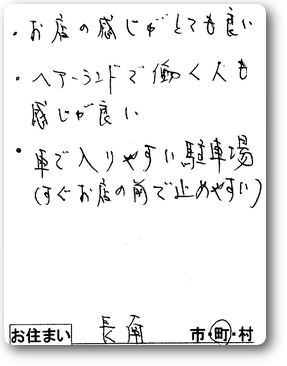 ・お店の感じがとても良い
・ヘアーランドで働く人も
感じが良い
・車で入りやすい駐車場
(すぐお店の前で止めやすい)
お住まい 長南 市・町・村